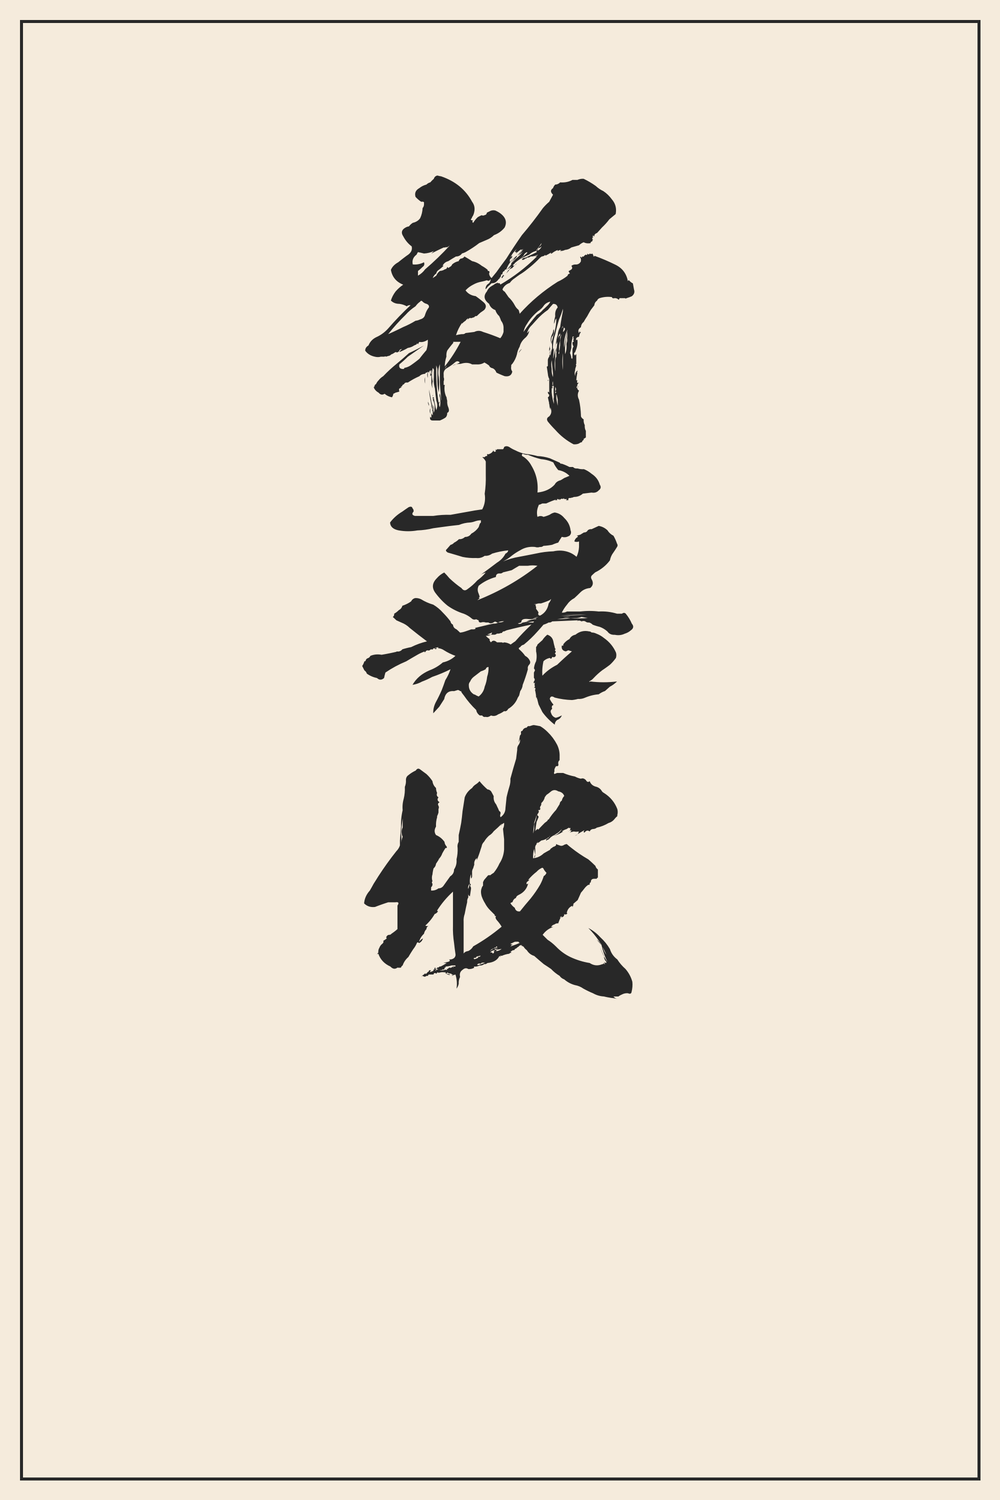 新嘉坡